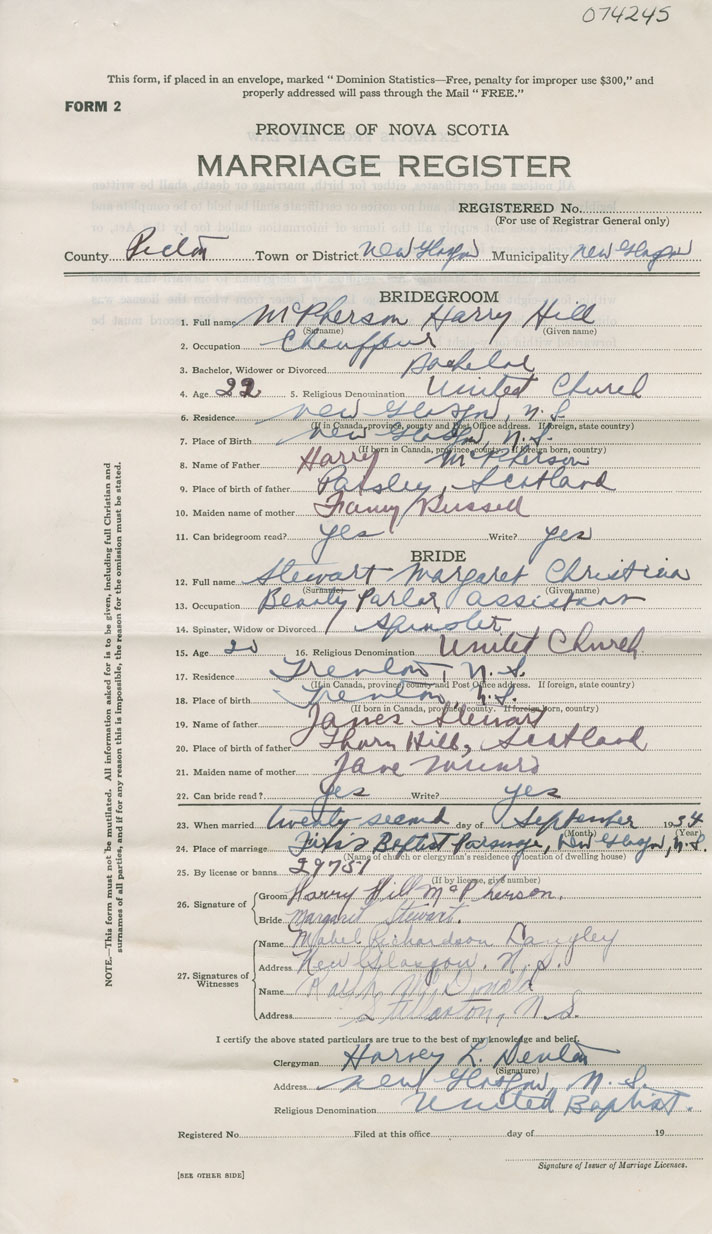 074245
This form, if placed in an envelope, marked "Dominion Statistics—Free, penalty for improper use $300," and
properly addressed will pass through the Mail "FREE."
FORM 2
PROVINCE OF NOVA SCOTIA
MARRIAGE REGISTER
REGISTERED No.
(For use of Registrar General only)
County Pictou Town or District New Glasgow Municipality New Glasgow
BRIDEGROOM
1. Full name McPherson Harry Hill
(Surname) (Given name)
2. Occupation Chauffeur
3. Bachelor, Widower or Divorced Bachelor
4. Age 22 5. Religious Denomination United Church
6. Residence New Glasgow, N.S.
(If in Canada, province, county and Post Office address. If foreign, state country)
7. Place of Birth New Glasgow, N.S.
(If born in Canada, province, county. If foreign born, country)
8. Name of Father Harry McPherson
9. Place of birth of father Paisley, Scotland
10. Maiden name of mother Fanny Russell
11. Can bridegroom read? yes Write? yes
BRIDE
12. Full name Stewart Margaret Christina
(Surname) (Given name)
13. Occupation Beauty Parlor Assistant
14. Spinster, Widow or Divorced Spinster
15. Age 20 16. Religious Denomination United Church
17. Residence Trenton, N.S.
(If in Canada, province county and Post Office address. If foreign, state country)
18. Place of birth Trenton, N.S.
(If born in Canada, province county. If foreign born, country)
19. Name of father James Stewart
20. Place of birth of father Thorn Hill, Scotland
21. Maiden name of mother Jane Munro
22. Can bride read? yes Write? yes
23. When married twenty second day of September 1934
(Month) (Year)
24. Place of marriage First Baptist Parsonage, New Glasgow, N.S.
(Name of church or clergyman's residence or location of dwelling house)
25. By license or banns 29751
(If by license, give number)
26. Signature of Groom Harry Hill McPherson.
Bride Margaret Stewart.
27. Signatures of Witnesses
Name Mabel Richardson Langley
Address New Glasgow, N.S.
Name McDonald
Address Stellarton, N.S.
I certify the above stated particulars are true to the best of my knowledge and belief.
Clergyman Harvey L. Denton
(Signature)
Address New Glasgow, N.S.
Religious Denomination United Baptist.
Registered No. Filed at this office day of 19
Signature of Issuer of Marriage Licenses.
[SEE OTHER SIDE]
NOTE.—This form must not be mutilated. All information asked for is to be given, including full Christian and
surnames of all parties, and if for any reason this is impossible, the reason for the omission must be stated.